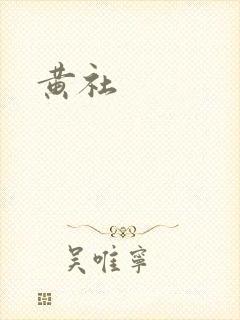 黄社
吴唯宁